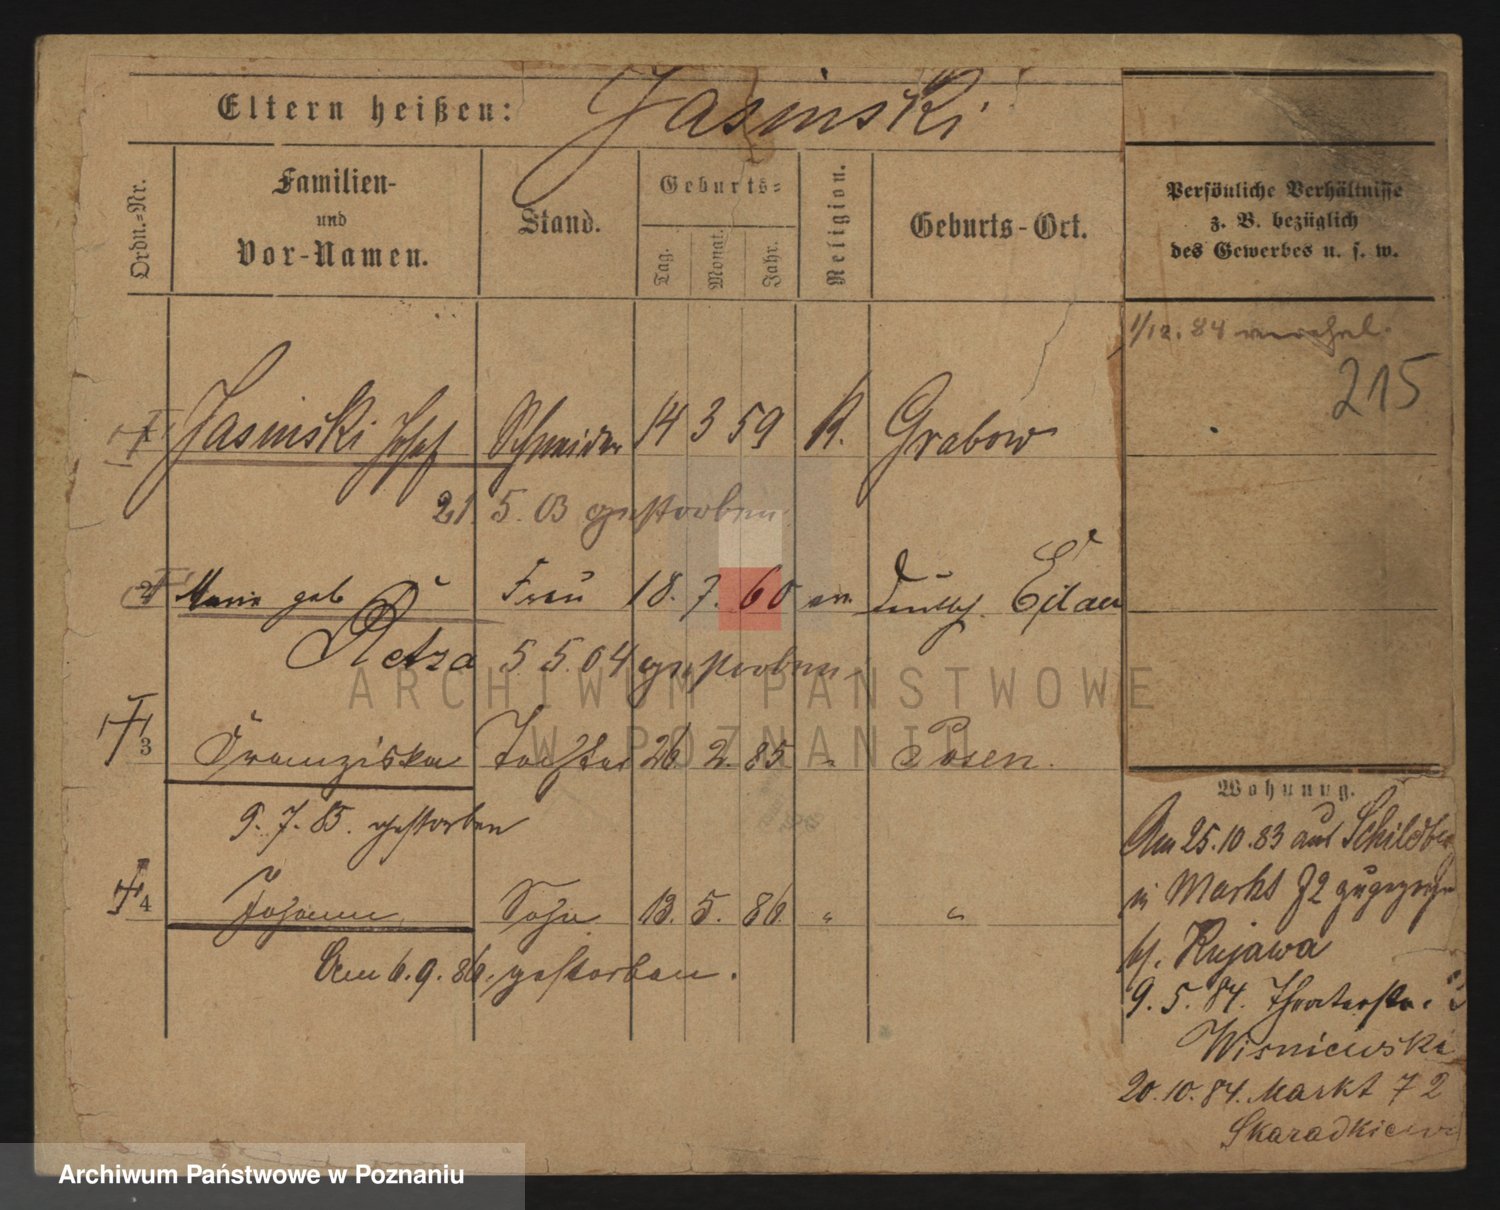 Eltern heißen: Jasinski
Ordn.-Nr.
Familien-
und
Vor-Namen.
Stand.
Geburts-
Tag.
Monat.
Jahr.
Religion.
Geburts-Ort.
Persönliche Verhältnisse
z. B. bezüglich
des Gewerbes u. s. w.
1/12. 84
215
1 Jasinski Josef Schneider 14 3 59 K. Grabow
21. 5. 03 gestorben
2 Marie geb Frau 18. 7. 60 ev. Deutsch. Eilau
Retza 5 5. 04 gestorben
3 Franziska Tochter 26 2. 85 " Posen.
9. 7. 85. gestorben
4 Johann Sohn 13. 5. 86. " "
Am 6. 9. 86. gestorben.
Wohnung.
Am 25. 10. 83 aus Schildbe
in Markt 72 zugezogen
bei Kujawa
9. 5. 84. Theaterstr.
Wisniewski
20. 10. 84. Markt 72
Skaradkiew
ARCHIWUM PAŃSTWOWE
W POZNANIU
Archiwum Państwowe w Poznaniu